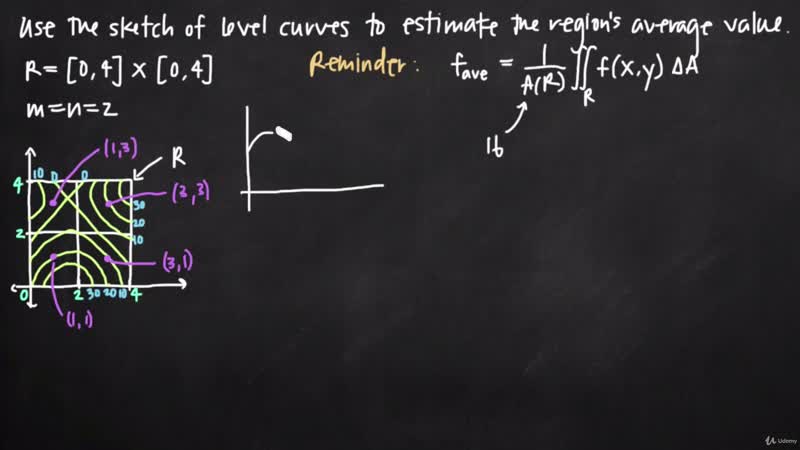 Use the sketch of level curves to estimate the region's average value.
R = [0,4] × [0,4]
Reminder: f_ave = 1/A(R) ∬_R f(x,y) ΔA
m=n=2
16
(1,3)
R
4 10 0 0
(3,3)
30
20
2 10
(3,1)
0 2 30 20 10 4
(1,1)
Udemy